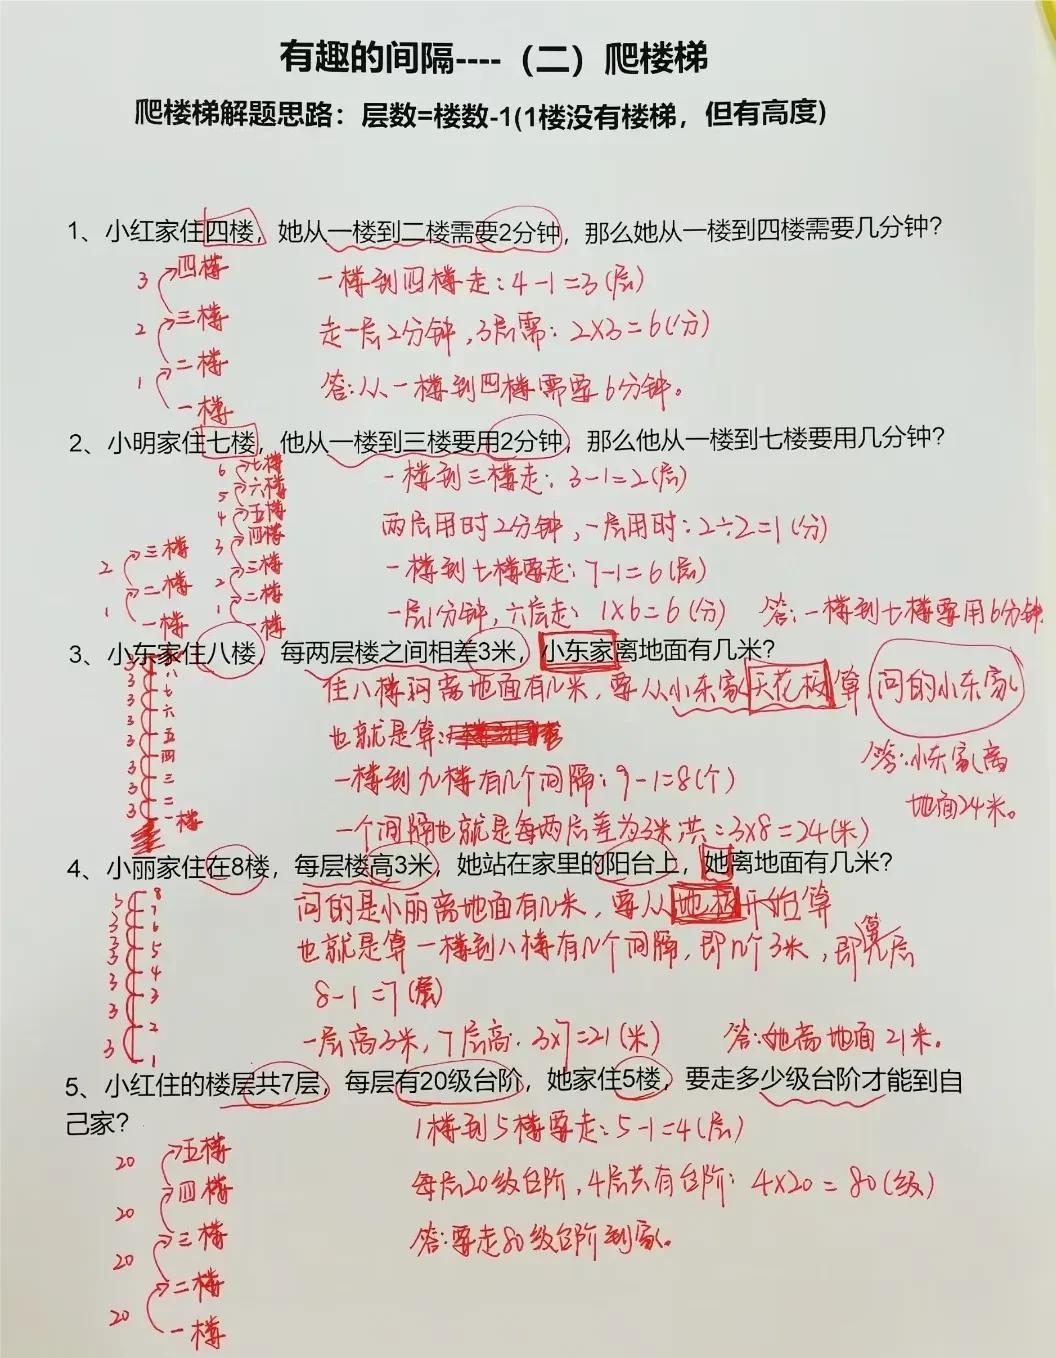 有趣的间隔----（二）爬楼梯
爬楼梯解题思路：层数=楼数-1(1楼没有楼梯，但有高度)
1、小红家住四楼，她从一楼到二楼需要2分钟，那么她从一楼到四楼需要几分钟？
3 四楼
2 三楼
1 二楼
一楼
一楼到四楼走：4-1=3(层)
走一层2分钟，3层需：2×3=6(分)
答：从一楼到四楼需要6分钟。
2、小明家住七楼，他从一楼到三楼要用2分钟，那么他从一楼到七楼要用几分钟？
2 三楼
1 二楼
一楼
6 七楼
5 六楼
4 五楼
3 四楼
2 三楼
1 二楼
一楼
一楼到三楼走：3-1=2(层)
两层用时2分钟，一层用时：2÷2=1(分)
一楼到七楼要走：7-1=6(层)
一层1分钟，六层走：1×6=6(分) 答：一楼到七楼要用6分钟.
3、小东家住八楼，每两层楼之间相差3米，小东家离地面有几米？
3 八
3 七
3 六
3 五
3 四
3 三
3 二
3 一楼
住八楼问离地面有几米，要从小东家天花板算 问的小东家
也就是算：
一楼到九楼有几个间隔：9-1=8(个)
一个间隔也就是每两层差为3米 共：3×8=24(米)
答：小东家离
地面24米。
4、小丽家住在8楼，每层楼高3米，她站在家里的阳台上，她离地面有几米？
3 8
3 7
3 6
3 5
3 4
3 3
3 2
1
问的是小丽离地面有几米，要从地板开始算
也就是算一楼到八楼有几个间隔，即几个3米，即算几层
8-1=7(层)
一层高3米，7层高：3×7=21(米) 答：她离地面21米。
5、小红住的楼层共7层，每层有20级台阶，她家住5楼，要走多少级台阶才能到自
己家？
20 五楼
20 四楼
20 三楼
20 二楼
一楼
1楼到5楼要走：5-1=4(层)
每层20级台阶，4层共有台阶：4×20=80(级)
答：要走80级台阶到家。